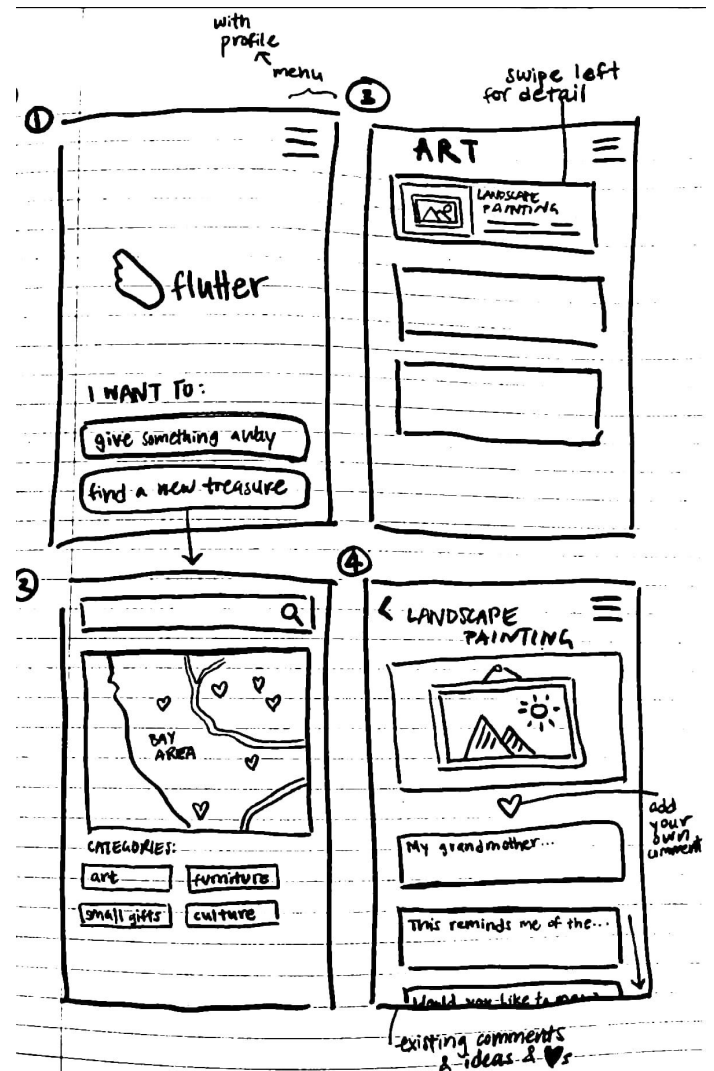 with
profile
menu
①
flutter
I WANT TO:
give something away
find a new treasure
②
BAY
AREA
CATEGORIES:
art
furniture
small gifts
culture
③
swipe left
for detail
ART
LANDSCAPE
PAINTING
④
< LANDSCAPE
PAINTING
add
your
own
comment
My grandmother...
This reminds me of the...
Would you like to
existing comments
& ideas & ♥s